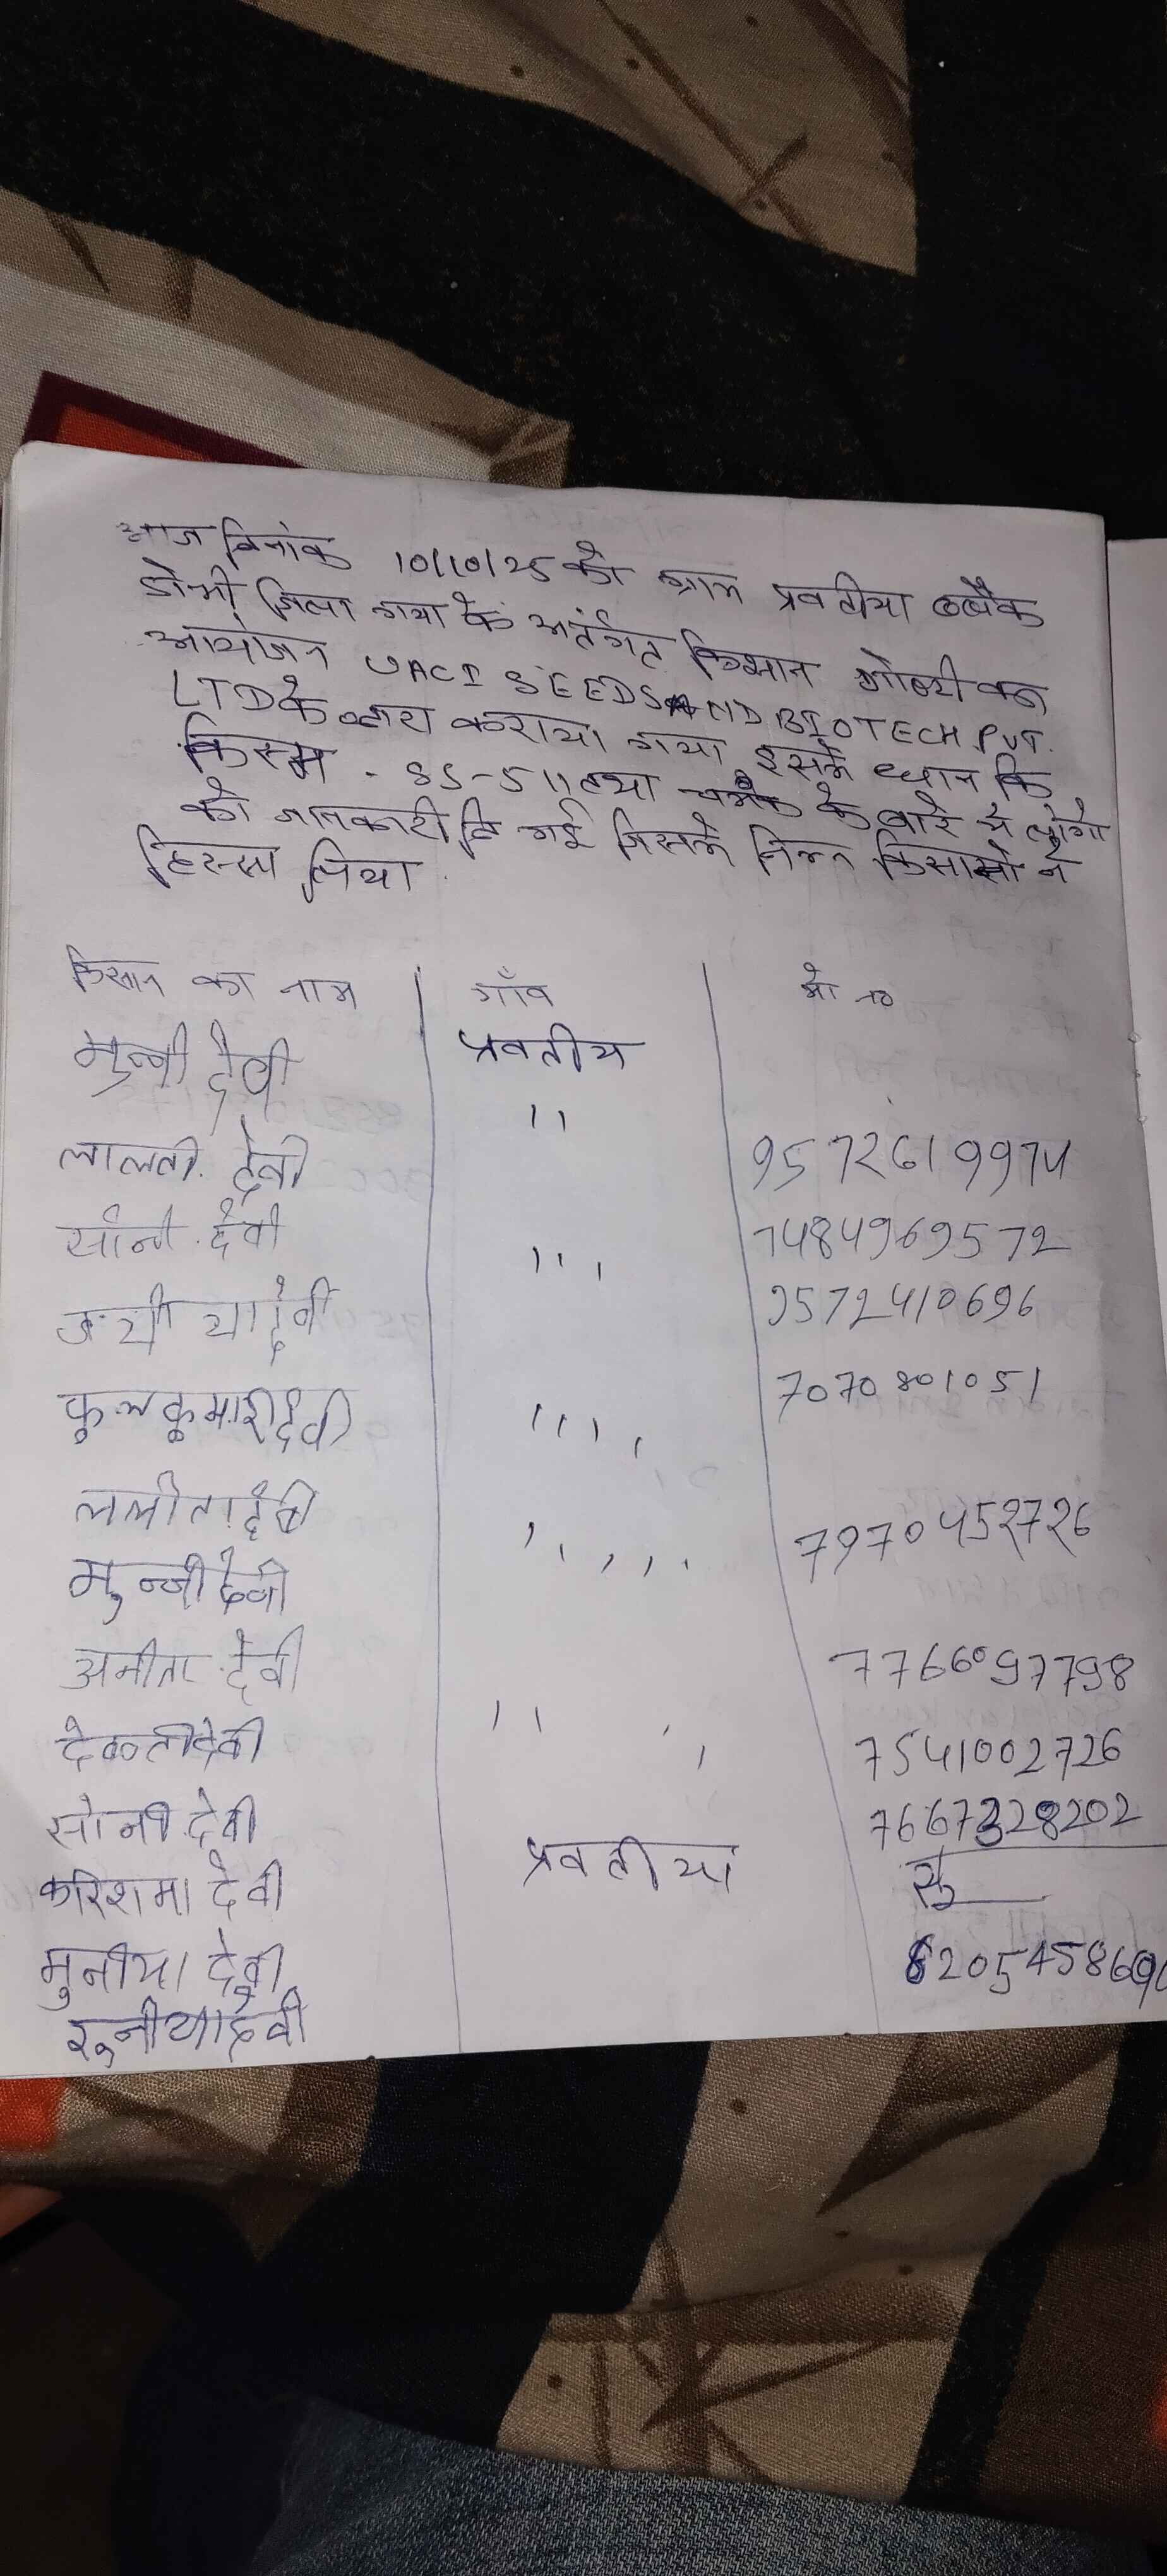 आज दिनांक 10/10/25 को ग्राम प्रवतीया ब्लौक
डोभी जिला गया के अंर्तगत किसान गोष्ठी का
आयोजन UACI SEEDS AND BIOTECH PVT.
LTD के द्वारा कराया गया इसमे धान कि
किस्म - 85-511 तथा चमक के बारे मे लोगो
को जानकारी दि गई जिसमे निम्न किसानो ने
हिस्सा लिया
किसान का नाम गाँव मो no
मुन्नी देवी प्रवतीय
"
लालती देवी 9572619974
सोनी देवी 7484969572
"'
देवी 9572410696
7070801051
फुलकुमारी देवी ''''
ललीता देवी 7970452726
'''''
मुन्नी देवी
अनीता देवी 7766097798
'' ' '
देवन्ती देवी 7541002726
सोनी देवी 7667328202
प्रवतीया
करिशमा देवी
मुनीया देवी 62054586
रुनीया देवी